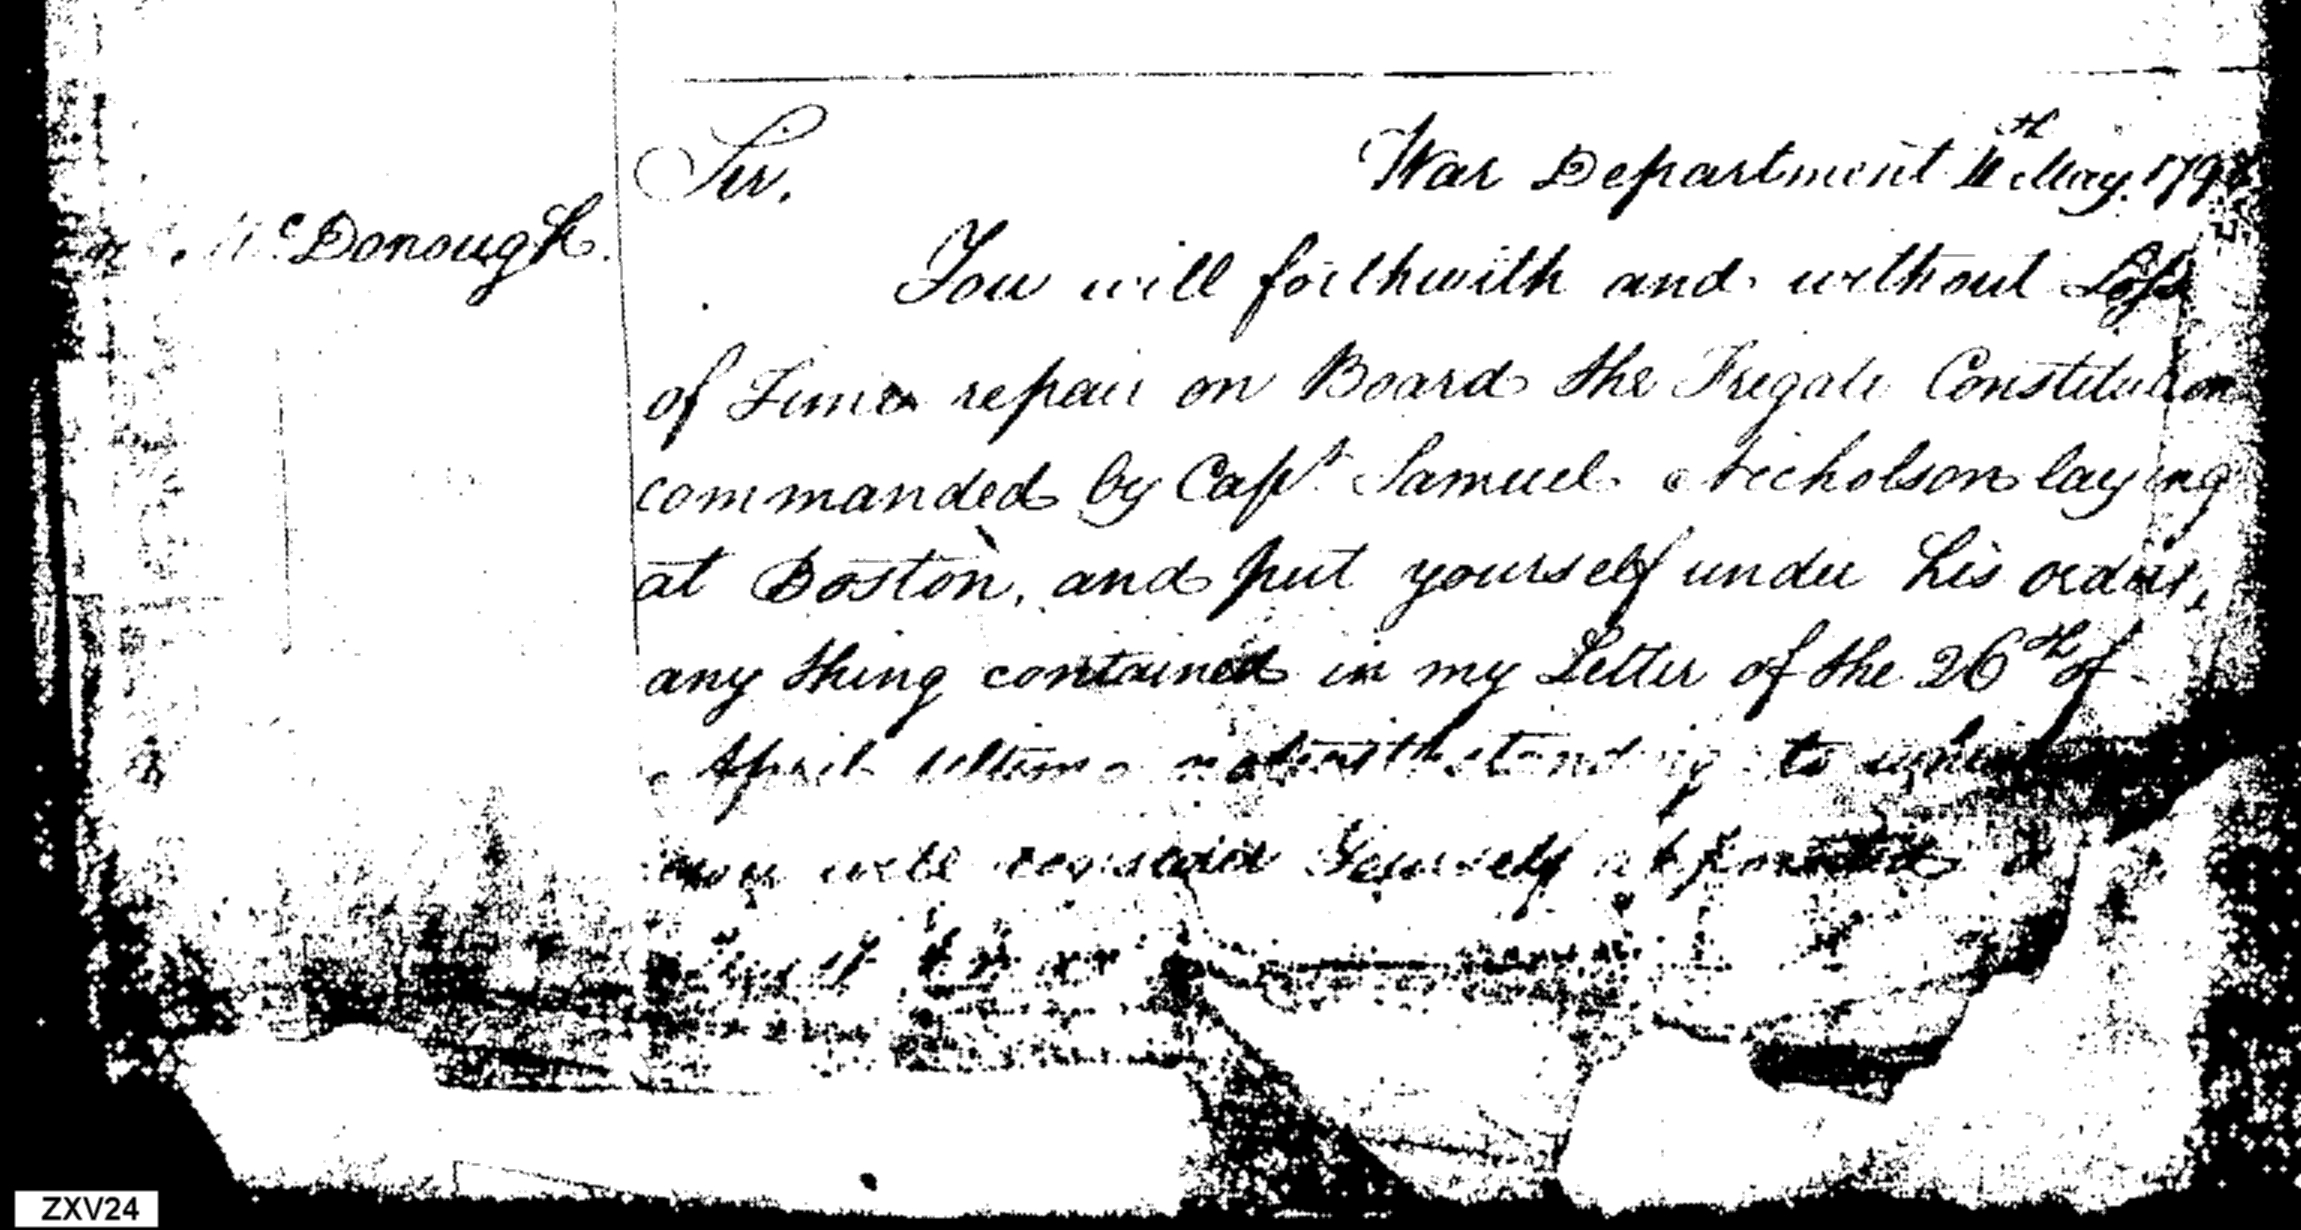 Sir,
War Department 11th May. 1798
McDonough.
You will forthwith and without Loss
of Time repair on Board the Frigate Constitution
commanded by Capt. Samuel Nicholson laying
at Boston, and put yourself under his orders,
any thing contained in my Letter of the 26th of
April Ultimo notwithstanding to which
you will consider Yourself
ZXV24